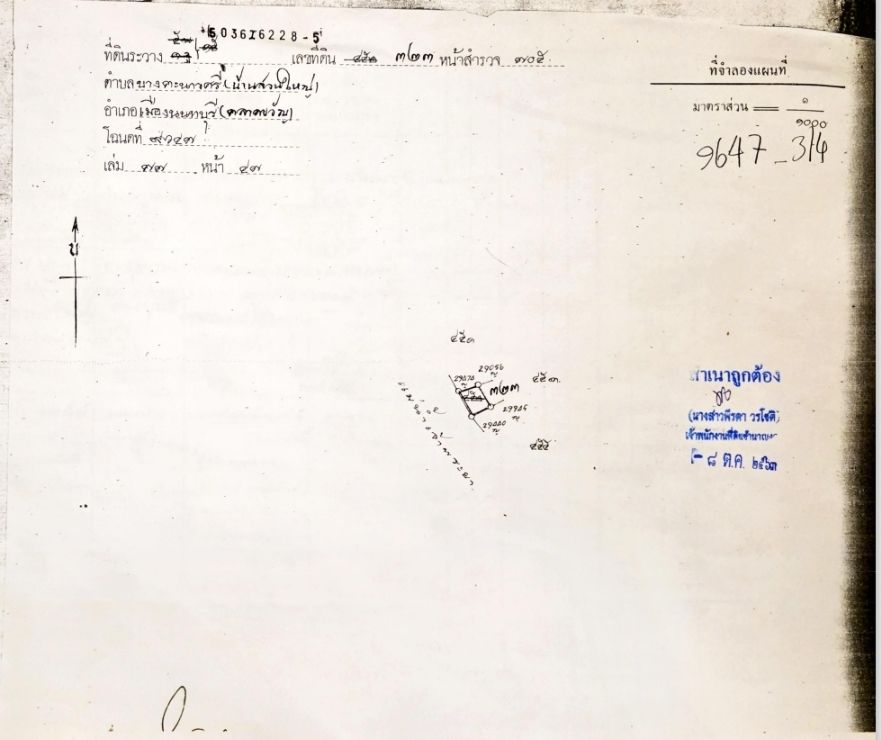 5036I6228-5
ที่ดินระวาง เลขที่ดิน ๓๒๓ หน้าสำรวจ ๗๐๕
ตำบล บางตะนาวศรี (บ้านสวนใหญ่)
อำเภอ เมืองนนทบุรี (ตลาดขวัญ)
โฉนดที่ ๙๖๔๗
เล่ม ๙๗ หน้า ๔๗
ที่จำลองแผนที่
มาตราส่วน ๑
๑๐๐๐
9647 _ 314
น
๔๕๑
29056
29070
๓๒๓
๔๕๓
29080
๔๕๕
แม่น้ำเจ้าพระยา
สำเนาถูกต้อง
(นางสาวพีรดา วรโชติ)
เจ้าพนักงานที่ดินชำนาญ
- ๘ ต.ค. ๒๕๖๓